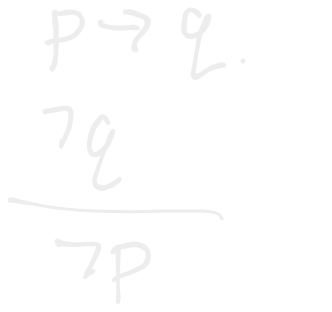 p → q.
¬q
¬p